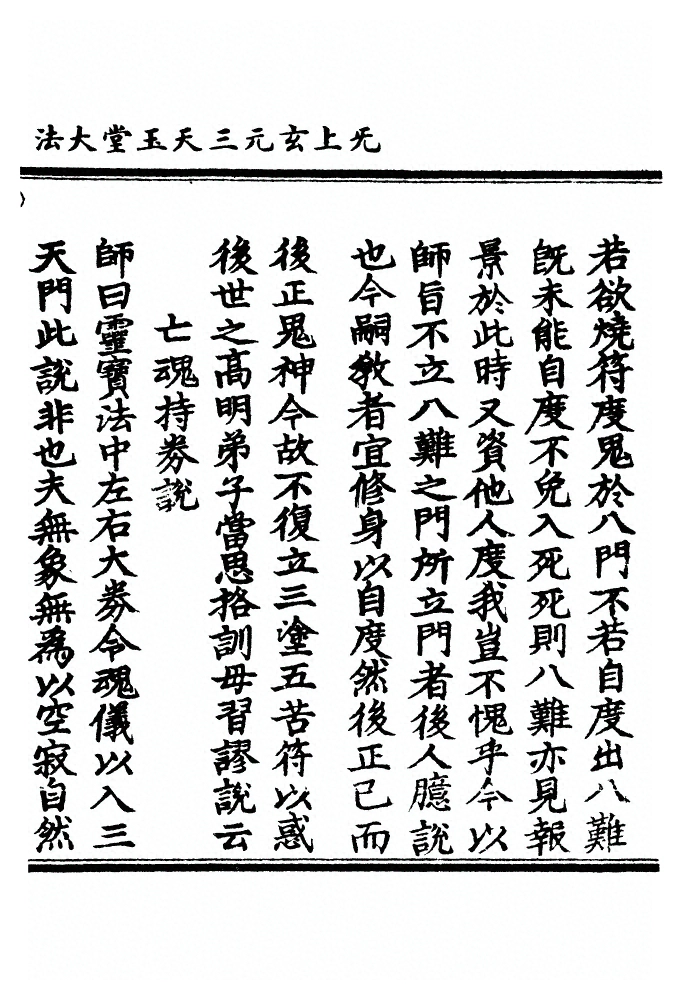 无上玄元三天玉堂大法
若欲燒符度鬼於八門不若自度出八難
旣未能自度不免入死死則八難亦見報
景於此時又資他人度我豈不愧乎今以
師旨不立八難之門所立門者後人臆說
也今嗣教者宜修身以自度然後正己而
後正鬼神今故不復立三塗五苦符以惑
後世之高明弟子當思格訓毋習謬說云
亡魂持券說
師曰靈寶法中左右大券令魂儀以入三
天門此說非也夫無象無為以空寂自然